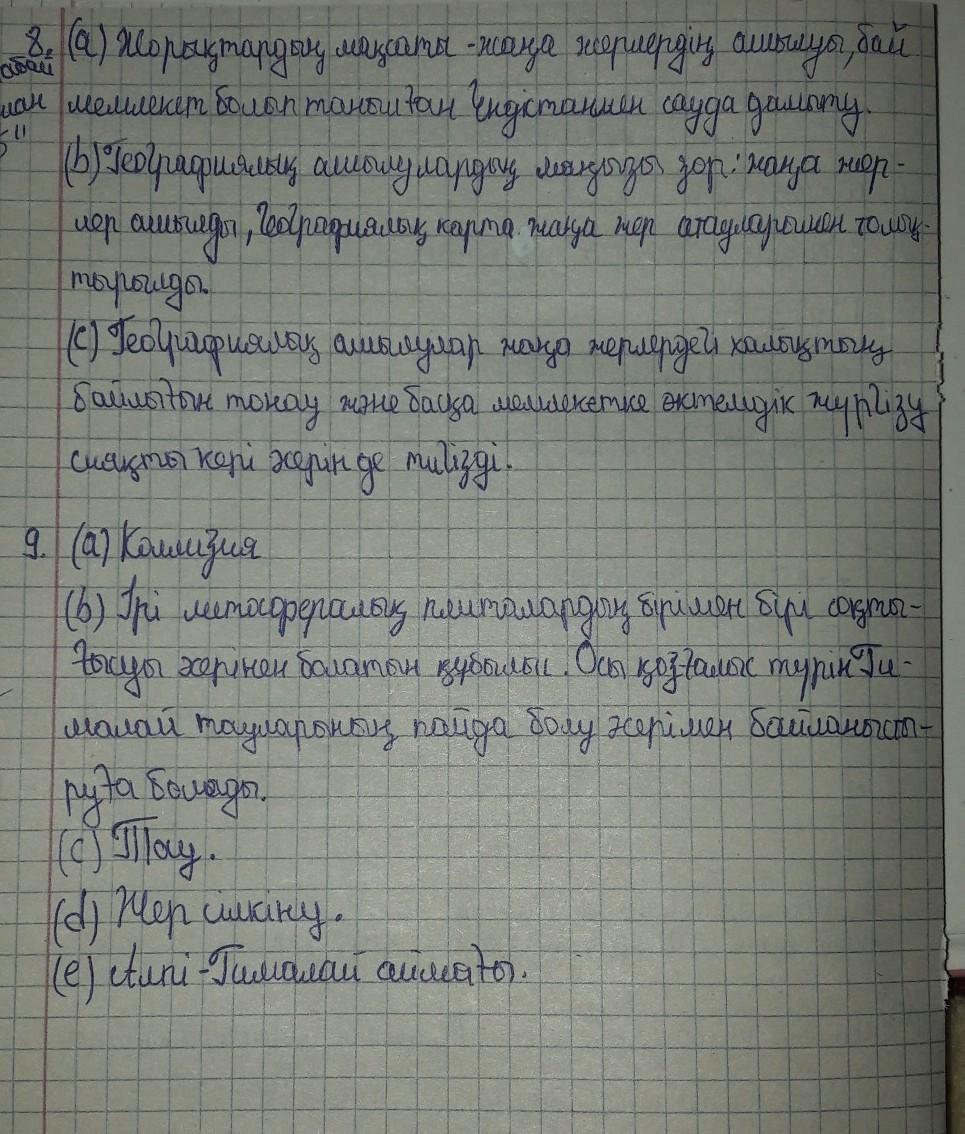 8. (a) Жорықтардың мақсаты - жаңа жерлердің ашылуы, бай
мемлекет болып танылған Үндістанмен сауда дамыту.
(b) Географиялық ашылулардың маңызы зор: жаңа жер-
лер ашылды, географиялық карта жаңа жер атауларымен толық-
тырылды.
(c) Географиялық ашылулар жаңа жерлердегі халықтың
байлығын тонау және басқа мемлекетке әктемдік жүргізу
сияқты кері әсерін де тигізді.
9. (a) Коллизия
(b) Ірі литосфералық плиталардың бірімен бірі соқты-
ғысуы әсерінен болатын құбылыс. Осы қозғалыс түрін Ги-
малай тауларының пайда болу әсерімен байланысты-
руға болады.
(c) Тау.
(d) Жер сілкіну.
(e) Альпі - Гималай аймағы.